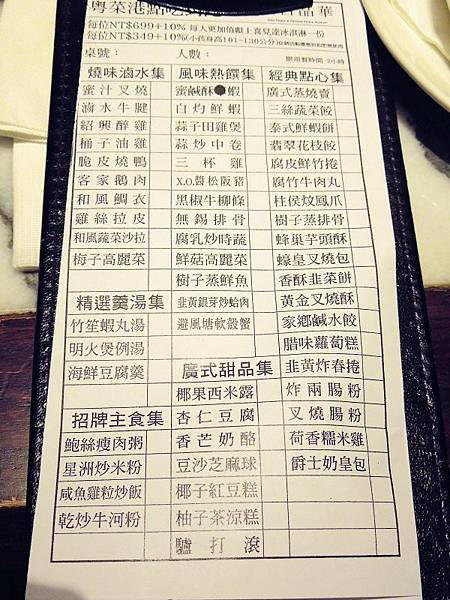 粵菜港點吃
品華
每位NT$699+10% 每人更加值獻上喜見達冰淇淋一份
每位NT$349+10%(小孩身高101-130公分)
桌號： 人數： 限用餐時間 2小時
燒味滷水集
蜜汁叉燒
滷水牛腱
紹興醉雞
桶子油雞
脆皮燒鴨
客家鵝肉
和風鯛衣
雞絲拉皮
和風蔬菜沙拉
梅子高麗菜
精選羹湯集
竹笙蝦丸湯
明火煲例湯
海鮮豆腐羹
招牌主食集
鮑絲瘦肉粥
星洲炒米粉
咸魚雞粒炒飯
乾炒牛河粉
風味熱饌集
蜜鹹酥●蝦
白灼鮮蝦
蒜子田雞煲
蒜炒中卷
三杯雞
X.O.醬松阪豬
黑椒牛柳條
無錫排骨
腐乳炒時蔬
鮮菇高麗菜
樹子蒸鮮魚
韭黃銀芽炒蛤肉
避風塘軟殼蟹
廣式甜品集
椰果西米露
杏仁豆腐
香芒奶酪
豆沙芝麻球
椰子紅豆糕
柚子茶涼糕
驢打滾
經典點心集
廣式蒸燒賣
三絲蔬菜餃
泰式鮮蝦餅
翡翠花枝餃
腐皮鮮竹捲
腐竹牛肉丸
柱侯炆鳳爪
樹子蒸排骨
蜂巢芋頭酥
蠔皇叉燒包
香酥韭菜餅
黃金叉燒酥
家鄉鹹水餃
腊味蘿蔔糕
韭黃炸春捲
炸兩腸粉
叉燒腸粉
荷香糯米雞
爵士奶皇包